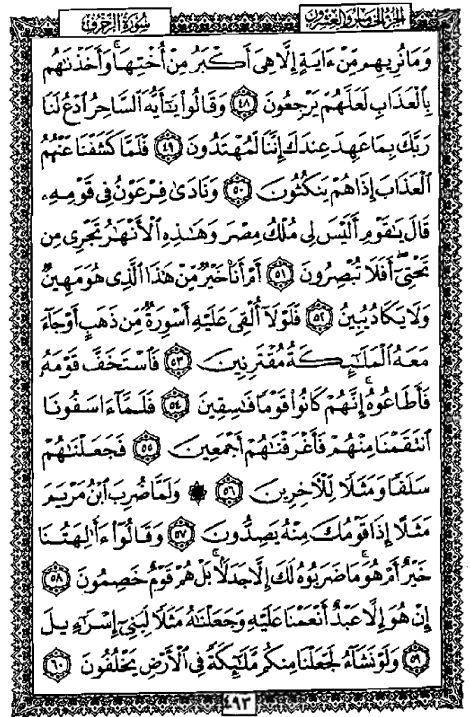 الجزء الخامس والعشرون سورة الزخرف
وَمَا نُرِيهِم مِّنْ ءَايَةٍ إِلَّا هِىَ أَكْبَرُ مِنْ أُخْتِهَا ۖ وَأَخَذْنَٰهُم
بِالْعَذَابِ لَعَلَّهُمْ يَرْجِعُونَ ٤٨ وَقَالُوا۟ يَٰٓأَيُّهَ السَّاحِرُ ادْعُ لَنَا
رَبَّكَ بِمَا عَهِدَ عِندَكَ إِنَّنَا لَمُهْتَدُونَ ٤٩ فَلَمَّا كَشَفْنَا عَنْهُمُ
الْعَذَابَ إِذَا هُمْ يَنكُثُونَ ٥٠ وَنَادَىٰ فِرْعَوْنُ فِى قَوْمِهِۦ
قَالَ يَٰقَوْمِ أَلَيْسَ لِى مُلْكُ مِصْرَ وَهَٰذِهِ الْأَنْهَٰرُ تَجْرِى مِن
تَحْتِىٓ ۖ أَفَلَا تُبْصِرُونَ ٥١ أَمْ أَنَا۠ خَيْرٌ مِّنْ هَٰذَا الَّذِى هُوَ مَهِينٌ
وَلَا يَكَادُ يُبِينُ ٥٢ فَلَوْلَآ أُلْقِىَ عَلَيْهِ أَسْوِرَةٌ مِّن ذَهَبٍ أَوْ جَآءَ
مَعَهُ الْمَلَٰٓئِكَةُ مُقْتَرِنِينَ ٥٣ فَاسْتَخَفَّ قَوْمَهُۥ
فَأَطَاعُوهُ ۚ إِنَّهُمْ كَانُوا۟ قَوْمًا فَٰسِقِينَ ٥٤ فَلَمَّآ ءَاسَفُونَا
انتَقَمْنَا مِنْهُمْ فَأَغْرَقْنَٰهُمْ أَجْمَعِينَ ٥٥ فَجَعَلْنَٰهُمْ
سَلَفًا وَمَثَلًا لِّلْءَاخِرِينَ ٥٦ ۞ وَلَمَّا ضُرِبَ ابْنُ مَرْيَمَ
مَثَلًا إِذَا قَوْمُكَ مِنْهُ يَصِدُّونَ ٥٧ وَقَالُوٓا۟ ءَأَٰلِهَتُنَا
خَيْرٌ أَمْ هُوَ ۚ مَا ضَرَبُوهُ لَكَ إِلَّا جَدَلًۢا ۚ بَلْ هُمْ قَوْمٌ خَصِمُونَ ٥٨
إِنْ هُوَ إِلَّا عَبْدٌ أَنْعَمْنَا عَلَيْهِ وَجَعَلْنَٰهُ مَثَلًا لِّبَنِىٓ إِسْرَٰٓءِيلَ
٥٩ وَلَوْ نَشَآءُ لَجَعَلْنَا مِنكُم مَّلَٰٓئِكَةً فِى الْأَرْضِ يَخْلُفُونَ ٦٠
٤٩٣